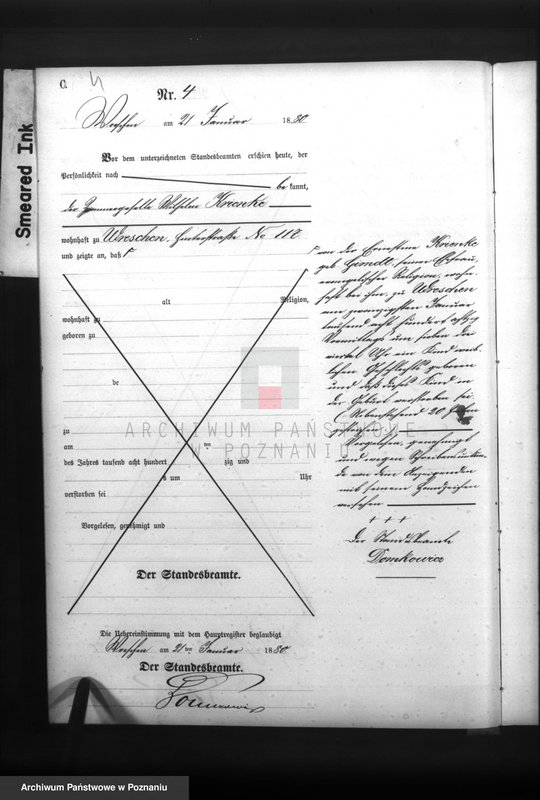 C. 4
Nr. 4
Wreschen am 21 Januar 1880
Vor dem unterzeichneten Standesbeamten erschien heute, der
Persönlichkeit nach
be kannt,
der Zimmergeselle Wilhelm Krienke
wohnhaft zu Wreschen, Hinterstraße No 112
und zeigte an, daß
alt Religion,
wohnhaft zu
geboren zu
de
zu
am ten
des Jahres tausend acht hundert zig und
s um Uhr
verstorben sei
Vorgelesen, genehmigt und
Der Standesbeamte.
Die Uebereinstimmung mit dem Hauptregister beglaubigt
Wreschen am 21 ten Januar 1880
Der Standesbeamte.
von der Ernestine Krienke
geb. seiner Ehefrau,
evangelischer Religion, wohn-
haft bei ihm, zu Wreschen
am zwanzigsten Januar
tausend acht hundert achtzig
Vormittags um sieben drei
viertel Uhr ein Kind weib-
lichen Geschlechts geboren
und daß dieses Kind in
der Geburt verstorben sei.
Nebenstehend 20
gestrichen
Vorgelesen, genehmigt
und wegen Schreibensunkun-
de von dem Anzeigenden
mit seinem Handzeichen
versehen
+ + +
Der Standesbeamte
Domkowicz
Smeared Ink
ARCHIWUM PAŃSTWOWE
W POZNANIU
Archiwum Państwowe w Poznaniu